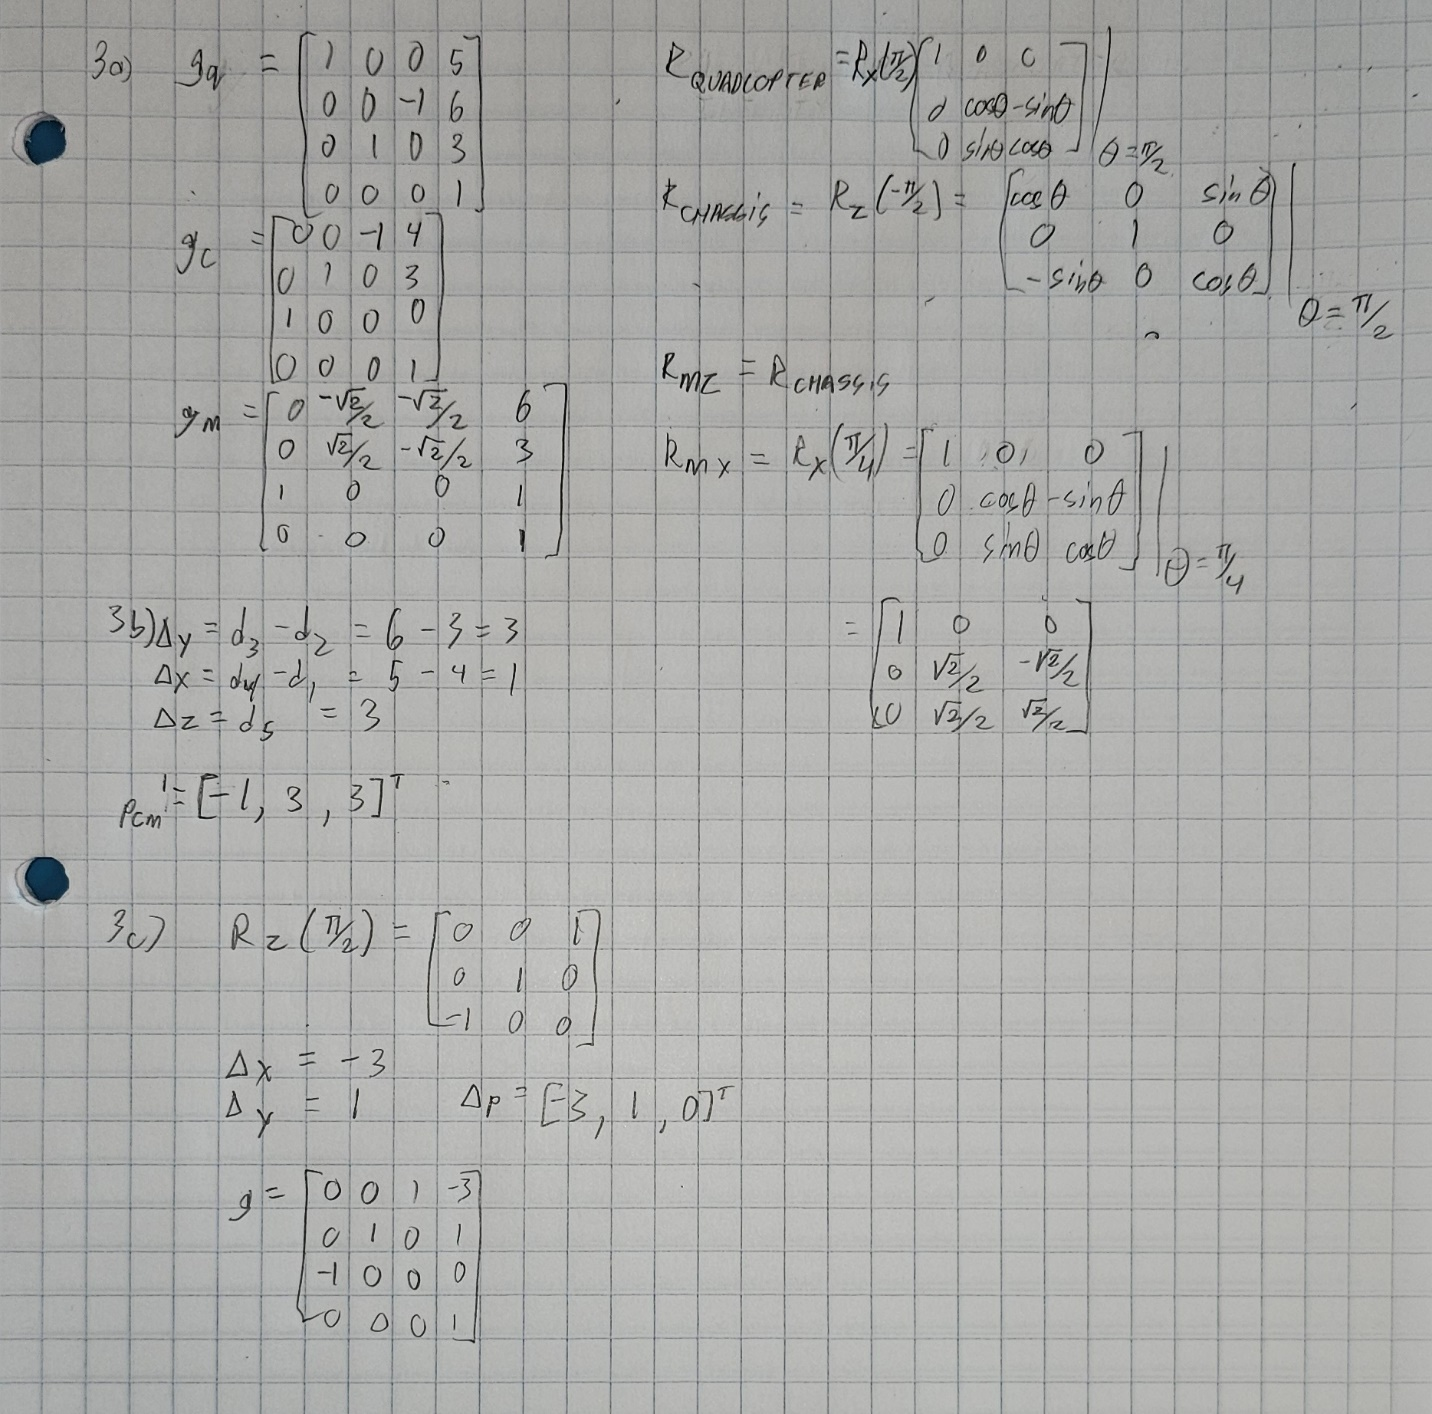 3a) g_q = [1 0 0 5
0 0 -1 6
0 1 0 3
0 0 0 1]
g_c = [0 0 -1 4
0 1 0 3
1 0 0 0
0 0 0 1]
g_m = [0 -√2/2 -√2/2 6
0 √2/2 -√2/2 3
1 0 0 1
0 0 0 1]
R_QUADCOPTER = R_x(π/2) [1 0 0
0 cosθ -sinθ
0 sinθ cosθ] | θ = π/2
R_CHASSIS = R_z(-π/2) = [cosθ 0 sinθ
0 1 0
-sinθ 0 cosθ] | θ = π/2
R_MZ = R_CHASSIS
R_MX = R_x(π/4) = [1 0 0
0 cosθ -sinθ
0 sinθ cosθ] | θ = π/4
= [1 0 0
0 √2/2 -√2/2
0 √2/2 √2/2]
3b) Δy = d_3 - d_2 = 6 - 3 = 3
Δx = d_4 - d_1 = 5 - 4 = 1
Δz = d_5 = 3
P_cm' = [-1, 3, 3]^T
3c) R_z(π/2) = [0 0 1
0 1 0
-1 0 0]
Δx = -3
Δy = 1 Δp = [-3, 1, 0]^T
g = [0 0 1 -3
0 1 0 1
-1 0 0 0
0 0 0 1]